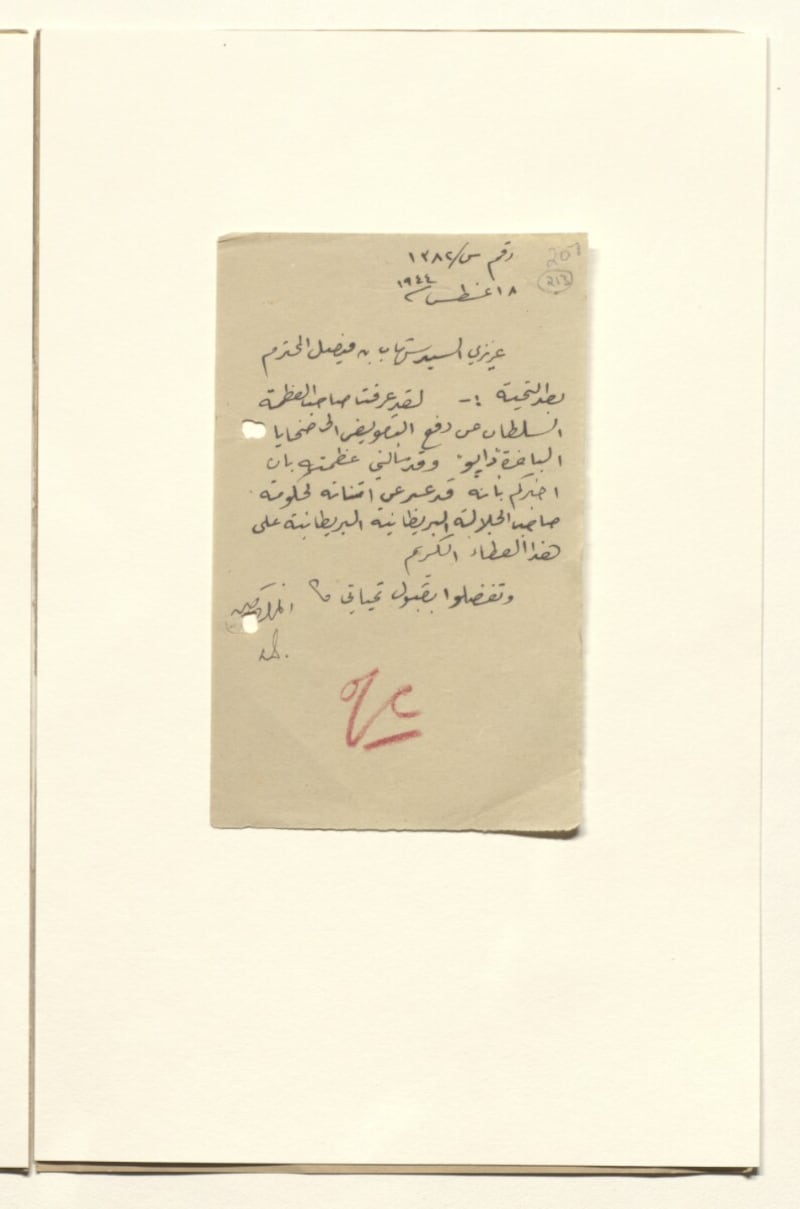 207
213
رقم س/١٣٨٢
١٨ اغسطس ١٩٤٤
عزيزي السيد شهاب بن فيصل المحترم
بعد التحية :- لقد عرفت صاحب العظمة
السلطان عن دفع التعويض الى ضحايا
الباخرة "دايو" وقد سألني عظمته بان
اخبركم بانه قد عبر عن امتنانه لحكومة
صاحب الجلالة البريطانية البريطانية على
هذا العطاء الكريم
وتفضلوا بقبول تحياتي